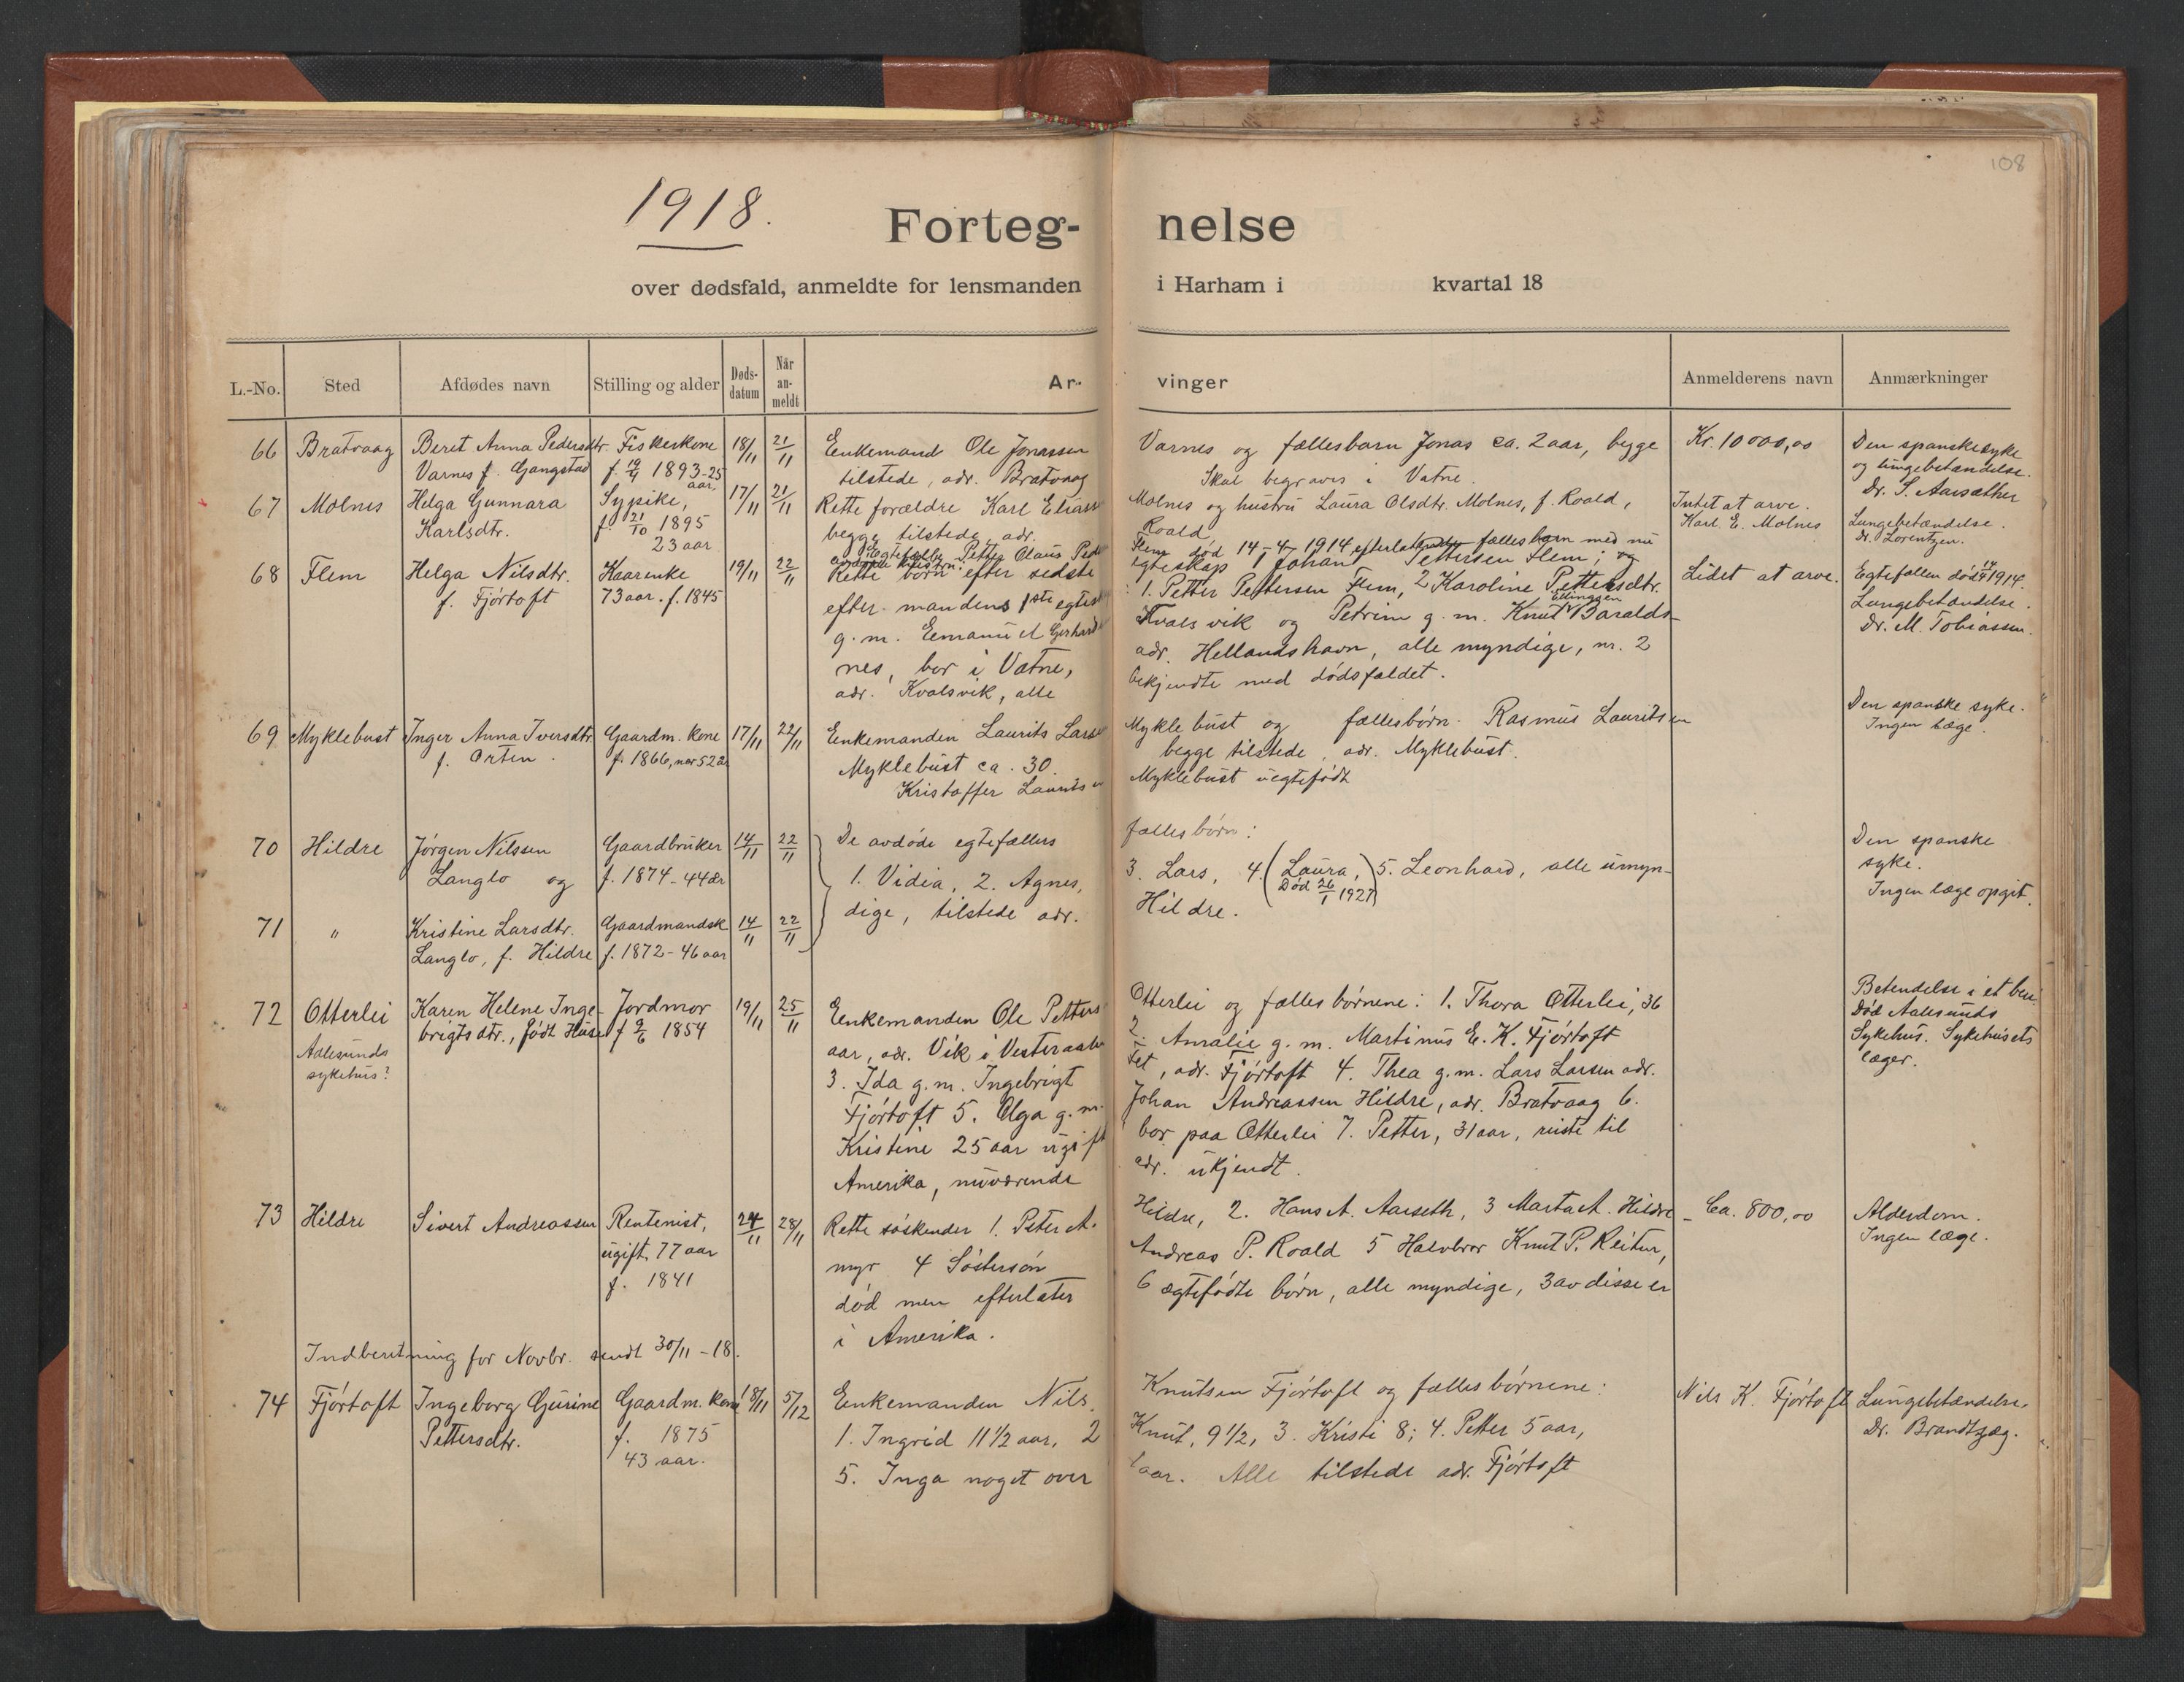 108
1918.
Forteg- nelse
over dødsfald, anmeldte for lensmanden i Harham i kvartal 18
L.-No. Sted Afdødes navn Stilling og alder Døds-datum Når an-meldt Ar- vinger Anmelderens navn Anmærkninger
66 Bratvaag Beret Anna Pedersdtr. Fiskerkone 18/11 21/11 Enkemand Ole Jonassen Varnes og fællesbarn Jonas ca. 2 aar, begge Kr. 10000,00 Den spanske syke
Varnes f. Gangstad f. 1893-25 aar. tilstede, adr. Bratvaag Skal begraves i Vatne. og lungebetændelse.
Dr. S. Aarsæther
67 Molnes Helga Gunnara Sypike, 17/11 21/11 Rette forældre Karl Elias Molnes og hustru Laura Olsdtr. Molnes, f. Roald, Intet at arve.
Karlsdtr. f. 21/10 1895 begge tilstede, adr. Roald Karl E. Molnes Lungebetændelse.
23 aar Dr. Lorentzen.
Petter Olaus Flem død 14-4-1914 fællesbarn med nu
68 Flem Helga Nilsdtr. Kaarenke 19/11 22/11 Rette børn efter sidste egteskap 1 Johant Pettersen Flem; og Lidet at arve. Egtefællen død 1914.
f. Fjörtoft 73 aar. f. 1845 efter mandens 1ste : 1. Petter Pettersen Flem, 2 Karoline Pettersdtr. Lungebetændelse.
g. m. Emanuel Gerhard Kvalsvik og Petrine g. m. Knut Ellingsen Baralds- Dr. M. Tobiassen.
nes, bor i Vatne, adr. Hellandshavn, alle myndige, nr. 2
adr. Kvalsvik, alle bekjendte med dødsfaldet.
69 Myklebust Inger Anna Iversdtr. Gaardm. kone 17/11 22/11 Enkemanden Laurits Lars Myklebust og fællesbørn. Rasmus Lauritsen Den spanske syke.
f. Orten. f. 1866, 52 Myklebust ca. 30. begge tilstede, adr. Myklebust. Ingen læge.
Kristoffer Laurits Myklebust uegtefødt
70 Hildre Jörgen Nilssen Gaardbruker 14/11 22/11 De avdøde egtefællers fællesbörn: Den spanske
Langlo og f. 1874-44 år 1. Vidia, 2. Agnes, 3. Lars, 4. (Laura, Død 26/1 1927) 5. Leonhard, alle umyn- syke.
dige, tilstede adr. Hildre. Ingen læge opgit.
71 " Kristine Larsdtr. Gaardmandsk 14/11 22/11
Langlo, f. Hildre f. 1872-46 aar
72 Otterlei Karen Helene Inge- Jordmor 19/11 25/11 Enkemanden Ole Petters Otterlei og fællesbørnene: 1. Thora Otterlei, 36 Betendelse i et ben.
Aalesunds brigtsdtr., født f 9/6 1854 aar, adr. Vik i 2. Amalie g. m. Martinus E. K. Fjörtoft Död Aalesunds
sykehus? 3. Ida g. m. Ingebrigt adr. Fjörtoft 4. Thea g. m. Lars Larsen adr. Sykehus. Sykehusets
Fjörtoft 5. Olga g. m. Johan Andreassen Hildre, adr. Bratvaag 6. læger.
Kristine 25 aar ugift bor paa Otterlei 7. Petter, 31 aar, reiste til
Amerika, nuværende adr. ukjendt.
73 Hildre Sivert Andreassen Rentenist, 24/11 28/11 Rette søskender 1. Peter A. Hildre, 2. Hans A. Aarseth, 3 Marta A. Hildre- Ca. 800,00 Alderdom.
ugift, 77 aar myr 4 Søstersøn Andreas P. Roald 5 Halvbror Knut P. Reitan, Ingen læge.
f. 1841 død men efterlater 6 ægtefødte børn, alle myndige, 3 av disse er
i Amerika.
Indberetning for Novbr. sendt 30/11-18.
74 Fjörtoft Ingeborg Gurine Gaardm. kone 18/11 5/12 Enkemanden Nils Knutsen Fjörtoft og fællesbørnene: Nils K. Fjörtoft Lungebetændelse.
Pettersdtr. f. 1875 1. Ingrid 11 1/2 aar, 2 Knut, 9 1/2, 3. Kristi 8; 4. Petter 5 aar, Dr. Brandtzæg.
43 aar. 5. Inga noget over 1 aar. Alle tilstede adr. Fjörtoft